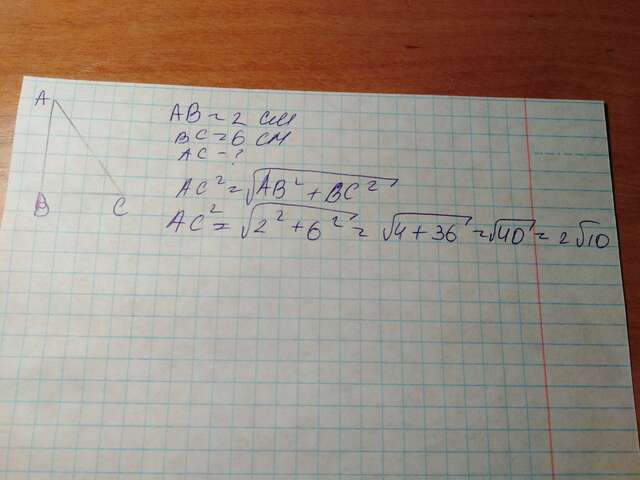 A
B
C
AB = 2 см
BC = 6 см
AC - ?
AC² = √AB² + BC²
AC² = √2² + 6² = √4 + 36 = √40 = 2√10